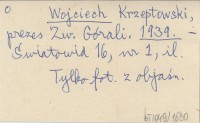 o
Wojciech Krzeptowski,
prezes Zw. Górali. 1939. =
Światowid 16, nr 1, il.
Tylko fot. z objaśn.